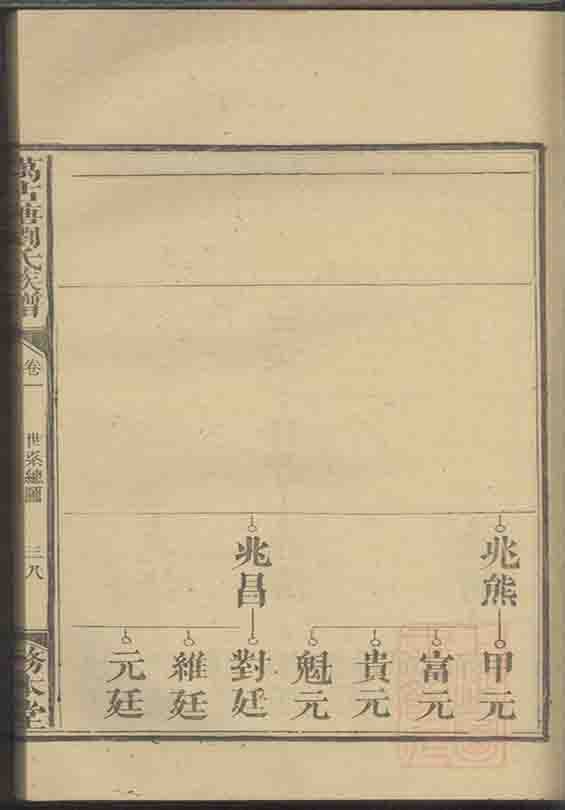 兆熊
甲元
富元
貴元
魁元
兆昌
對廷
維廷
元廷
萬古塘劉氏族譜
卷一
世系總圖
三八
務本堂